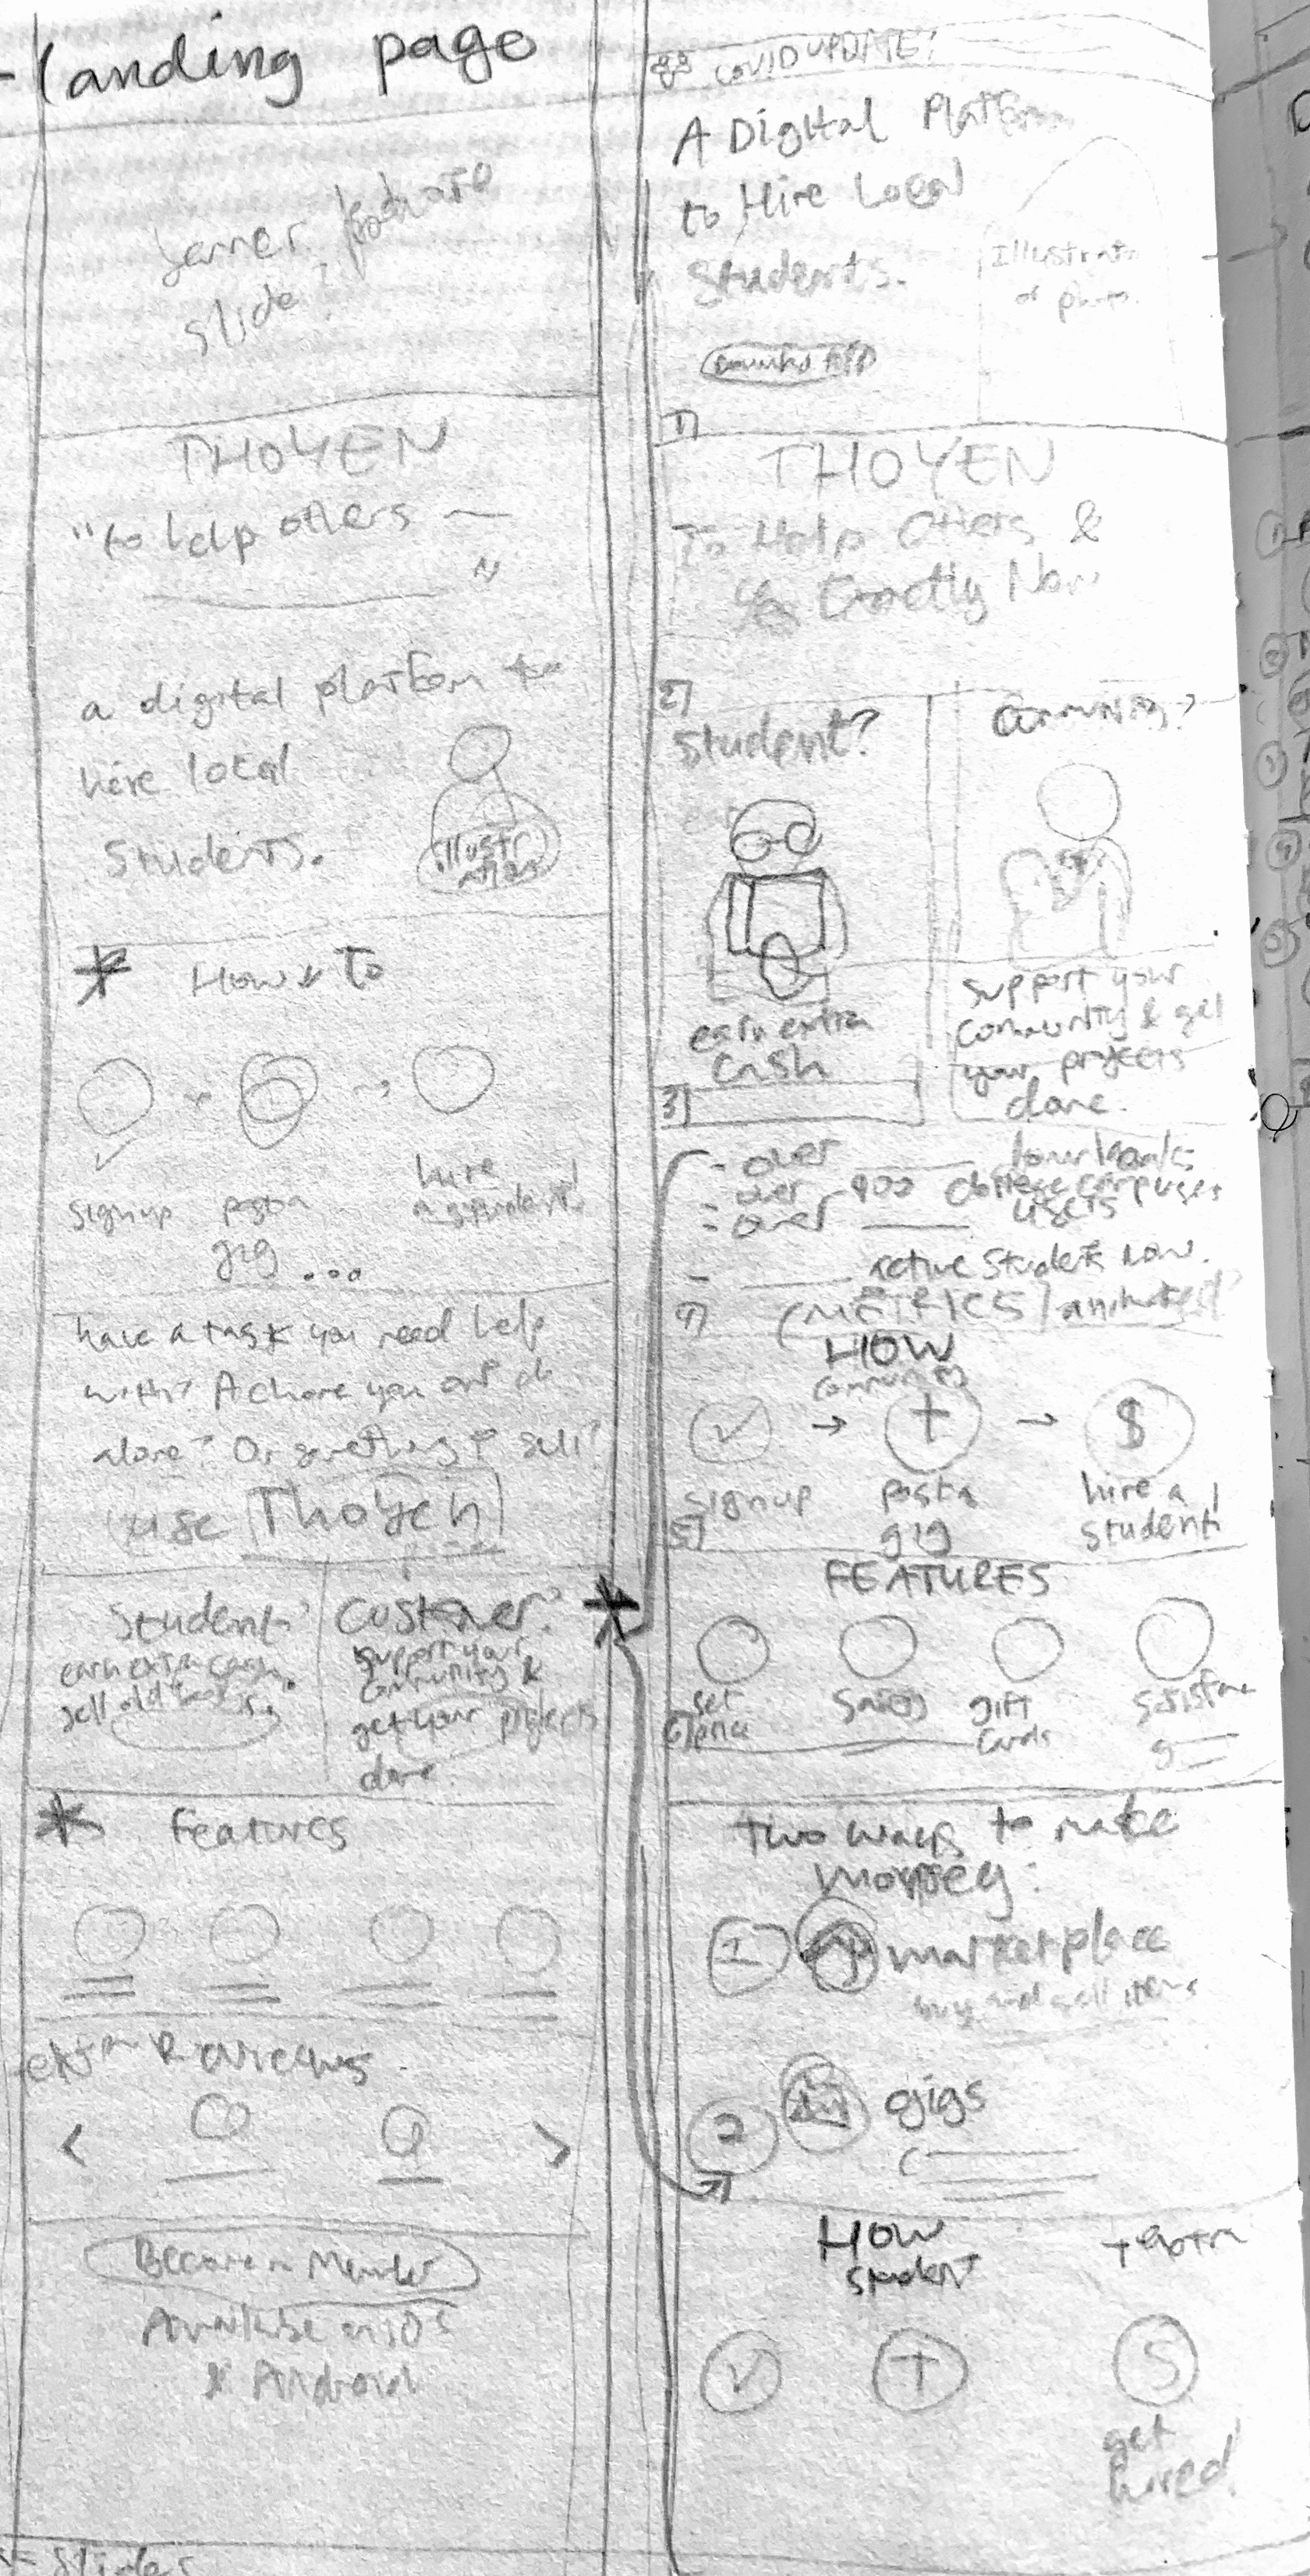 landing page
banner feature
slide?
THOYEN
"to help others —
"
a digital platform to
hire local
students.
illustr
ations
* How To
signup
post a
gig ...
hire
a student!
have a task you need help
with? A chore you can't do
alone? Or something to sell?
use Thoyen
Student?
earn extra cash.
sell old
Customer?
support your
community &
get your projects
done.
* Features
Reviews
< >
Become a Member
Available on iOS
& Android
slides
COVID UPDATE!
A Digital Platform
to Hire Local
Students.
Illustration
or photo.
download APP
1)
THOYEN
To Help Others &
Exactly How
2)
Student?
earn extra
cash
Community?
support your
community & get
your projects
done.
3)
- over ___ downloads
- over 900 college campuses
- over ___ users
- ___ active students now.
4) (METRICS/animated?
HOW
community
✓ → + → $
signup
post a
gig
hire a
student!
5)
FEATURES
set
price
gift
cards
6)
two ways to make
money:
1 marketplace
buy and sell items
2 gigs
HOW
student
✓ + $
get
hired!